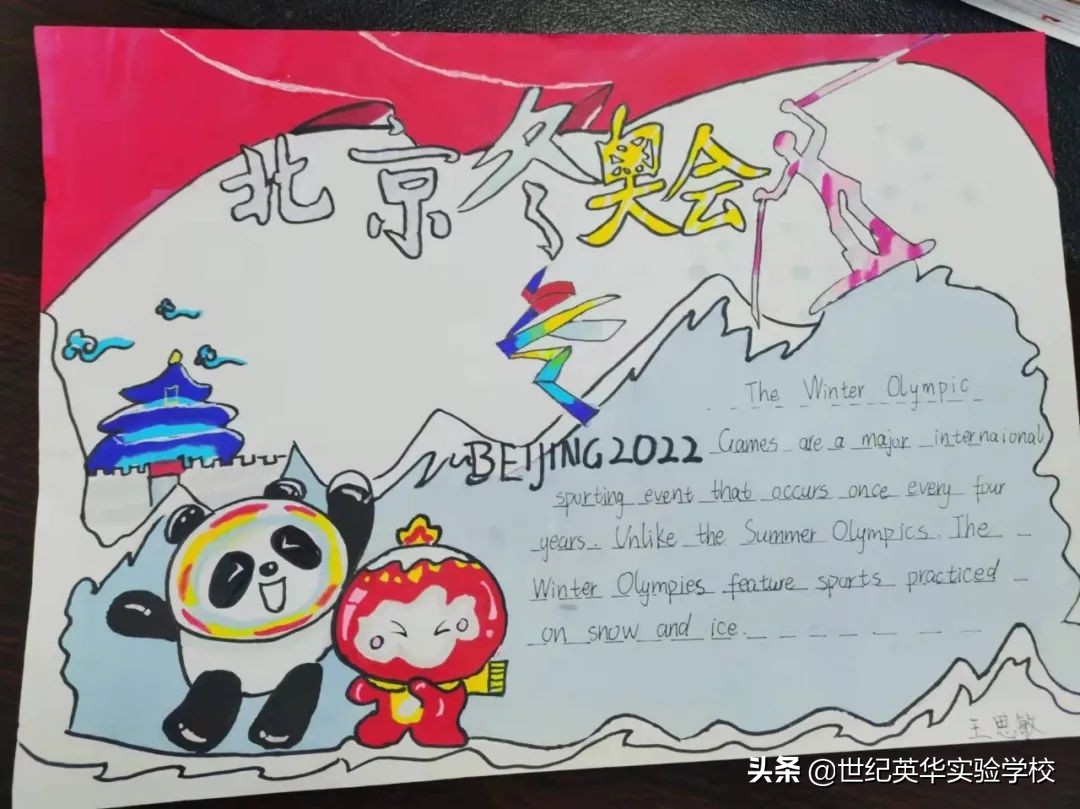 北京冬奥会
The Winter Olympic
BEIJING2022
Games are a major internaional
sporting event that occurs once every four
years. Unlike the Summer Olympics. The
Winter Olympies feature sports practiced
on snow and ice.
王思敏
头条 @世纪英华实验学校